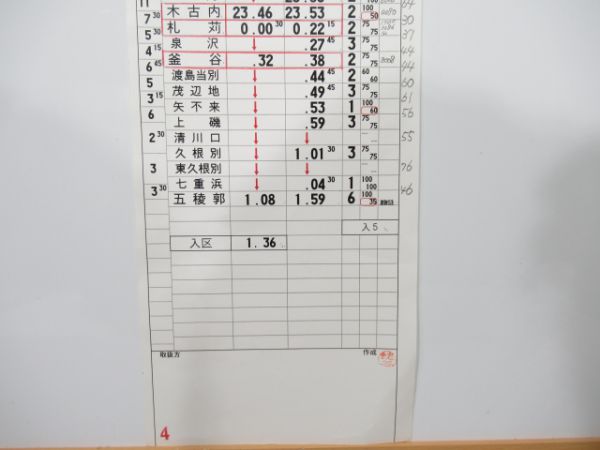 11
木古内 23.46 23.53 2 100 50
7 30
札苅 0.00 30 0.22 15 2 75 75 30
5 30
泉沢 ↓ .27 45 3 75 75 37
4 15
釜谷 .32 .38 2 75 75 44
6 45
渡島当別 ↓ .44 45 2 60
茂辺地 ↓ .49 45 3 75 75 61
3 15
矢不来 ↓ .53 1 100 60 56
6
上磯 ↓ .59 3 75 75
清川口 ↓ ↓ 55
2 30
久根別 ↓ 1.01 30 3 75 75
東久根別 ↓ ↓ 76
3
七重浜 ↓ .04 30 1 100 100 46
3 30
五稜郭 1.08 1.59 6 100 35
入5
入区 1.36
取扱方 作成
4